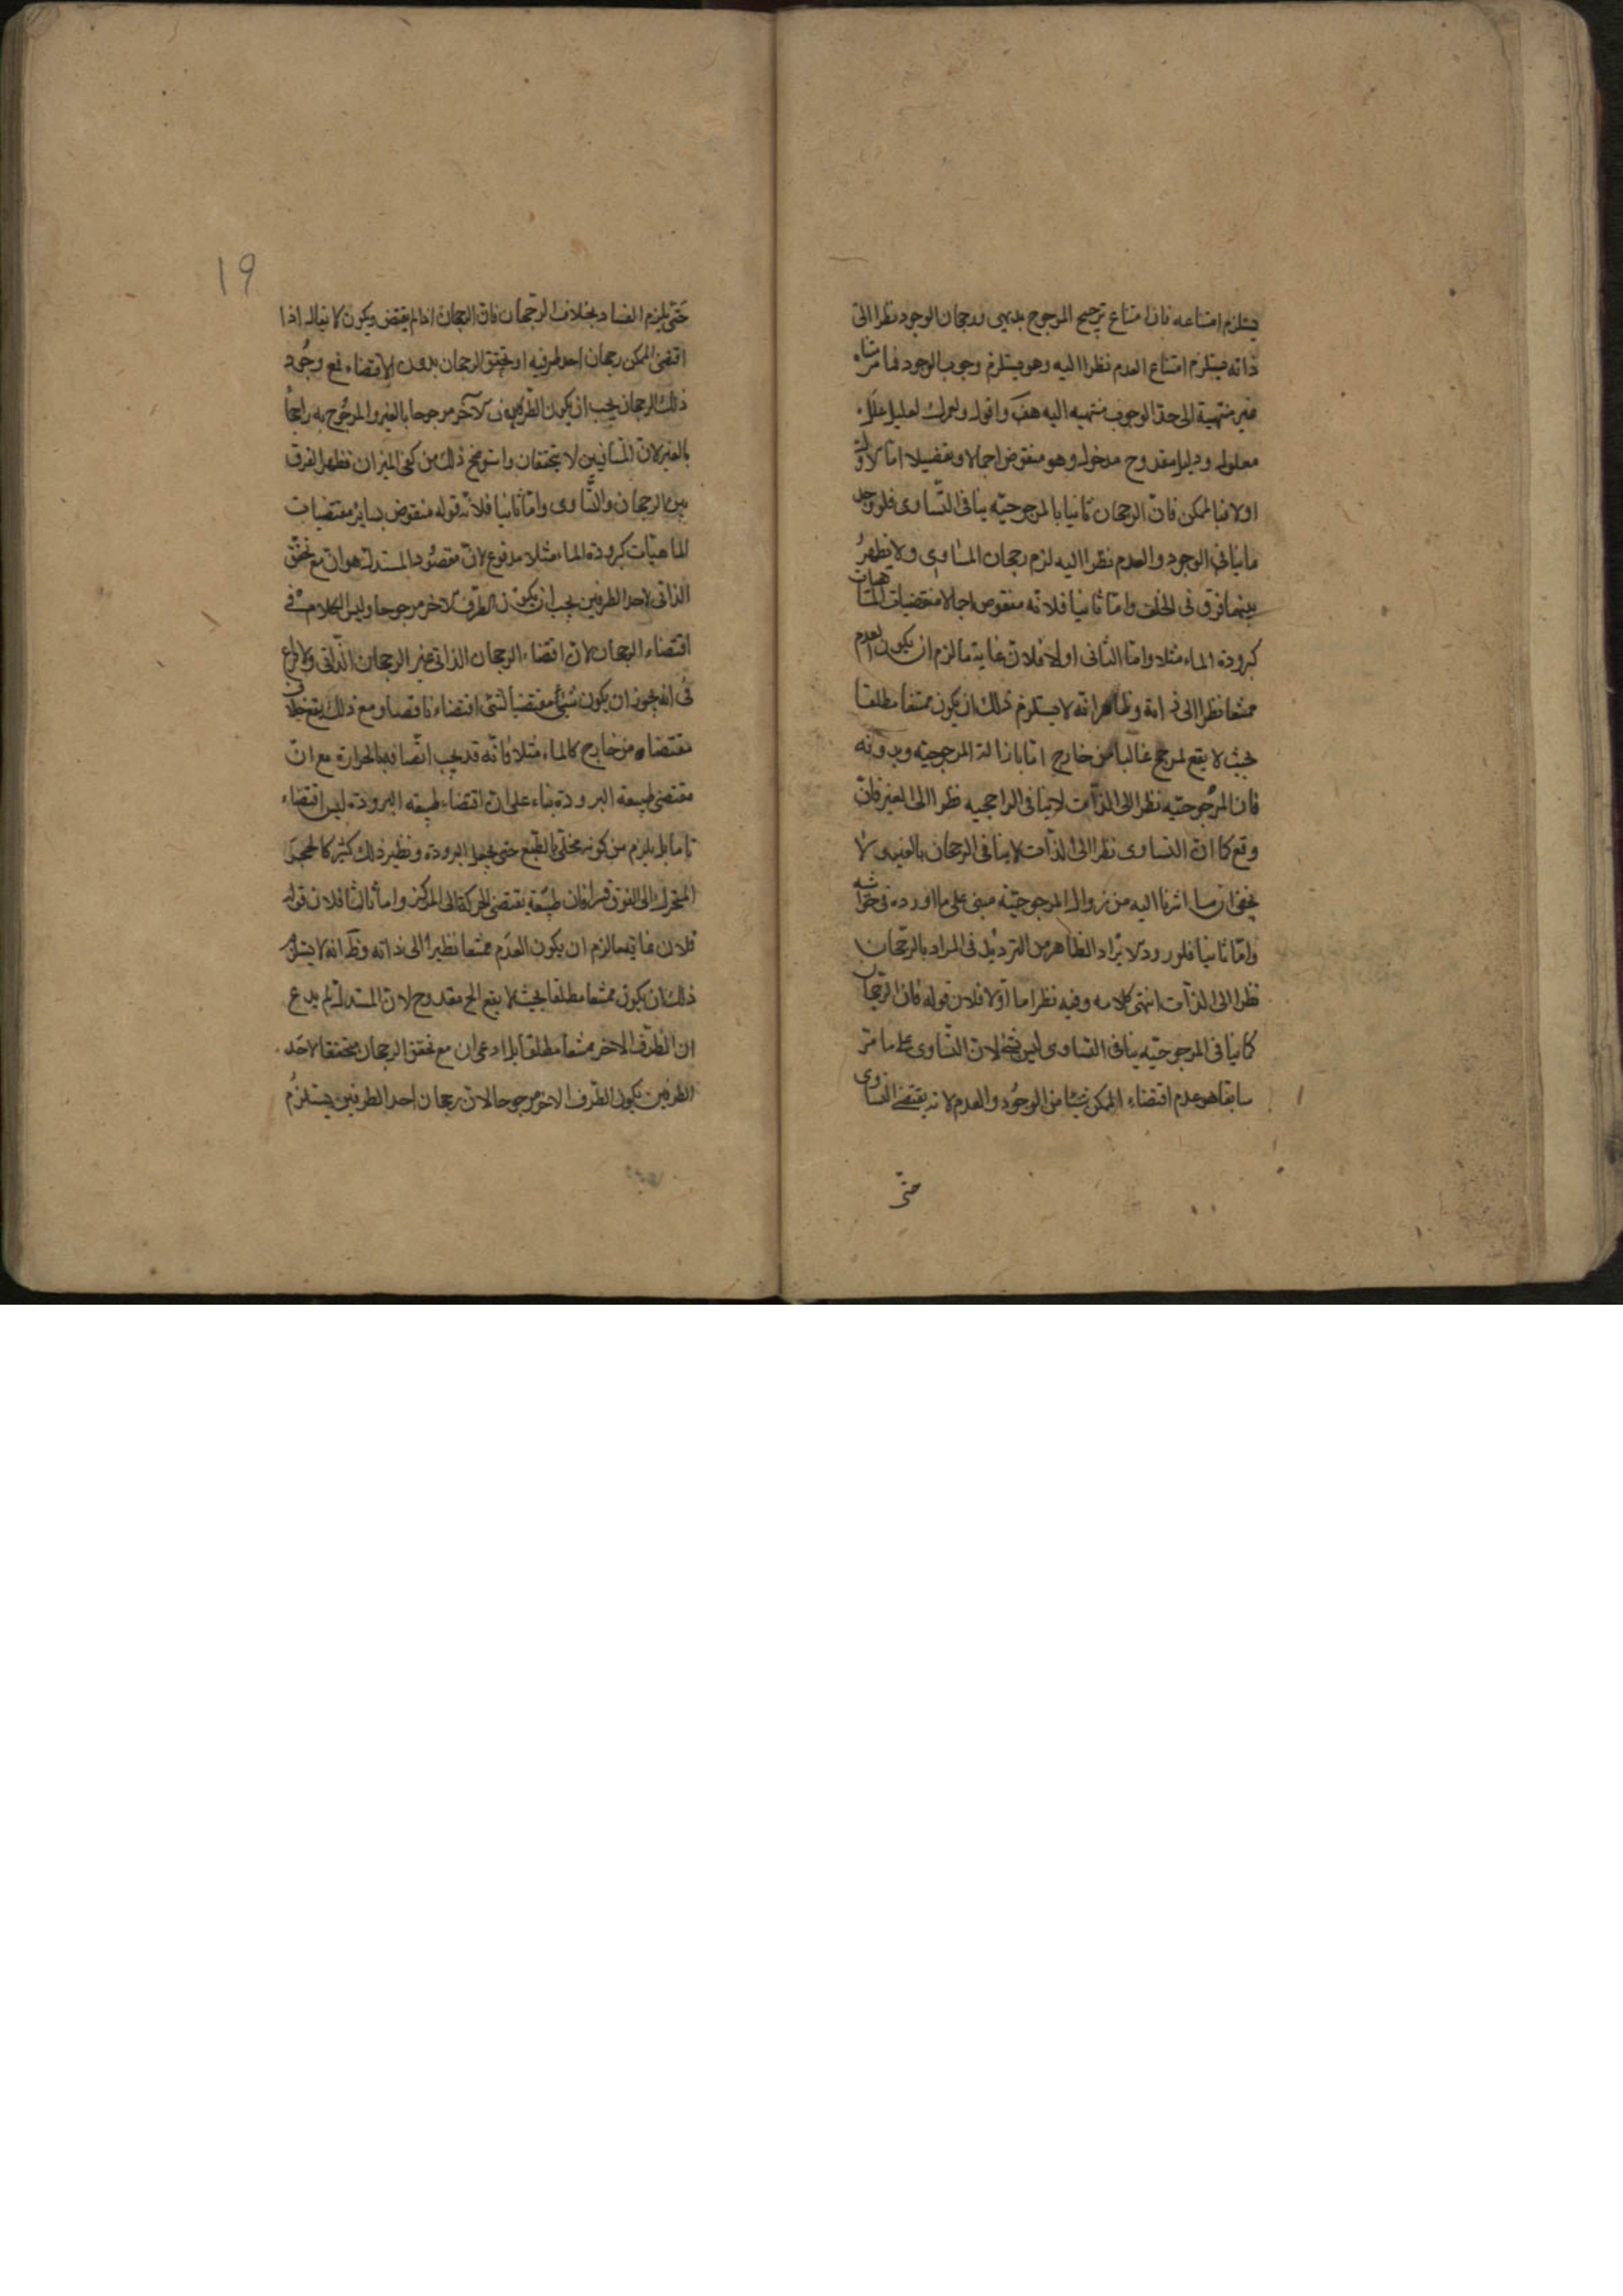 يستلزم امتناعه فان امتناع ترجيح المرجوح بديهى فرجحان الوجود نظرا الى
ذاته يستلزم امتناع العدم نظرا اليه وهو يستلزم وجوب الوجود فما فرضناه
غير منتهية الى حد الوجوب منتهيه اليه هف واقول ولعمرك لعليل علله
معلول ودليل مقدوح مدخول وهو منقوض اجمالا وتفصيلا اما الاول
اولا فبالممكن فان الرجحان ثانيا بالمرجوحيّه ينافى التّساوى فلو وجد
ما ينافى الوجود والعدم نظرا اليه لزم رجحان المساوى ولا يظهر
بينهما فرق فى الخلف وامّا ثانيا فلانّه منقوض اجمالا بمقتضيات الماهيات
كبرودة الماء مثلا وامّا الثانى اولا فلان غاية ما لزم ان يكون العدم
ممتنعا نظرا الى ذاته وظاهر انّه لا يستلزم ذلك ان يكون ممتنعا مطلقا
بحيث لا يقع لمرجح غالبا من خارج امّا بازالة المرجوحيّة وبدونه
فان المرجوحيّه نظرا الى الذّات لا ينافى الراجحيه نظرا الى الغير فانّ
وقع كما انّ التساوى نظرا الى الذّات لا ينافى الرجحان بالغير ولا
يخفى ان ما اشرنا اليه من زوال المرجوحيّة مبنى على ما اورده فى حواشيه
وامّا ثانيا فلورود الايراد الظاهر من الترديد فى المراد بالرّجحان
نظرا الى الذّات انتهى كلامه وفيه نظر اما اوّلا فلان قوله فان الرجحان
كما ينافى المرجوحيّه ينافى التساوى ليس بشئ لان التّساوى على ما مرّ
سابقا هو عدم اقتضاء الممكن شيئا من الوجود والعدم لا انه يقتضى التساوى
حتّى
19
حتّى يلزم الفساد بخلاف الرجحان فان الرجحان اذا لم يقتض ويكون لا يقال اذا
اقتضى الممكن رجحان احد طرفيه او تحقق الرجحان بدون الاقتضاء فمع وجود
ذلك الرجحان يجب ان يكون الطّرف الآخر مرجوحا بالغير والمرجوح به راجحا
بالغير لان المتنافيين لا يتحققان واستوضح ذلك من كفتى الميزان فظهر الفرق
بين الرجحان والتّساوى وامّا ثانيا فلانّ قوله منقوض بساير مقتضيات
الماهيّات كبرودة الماء مثلا مدفوع لانّ مقصود المستدل هو ان مع تحقّق
الذاتى لاحد الطرفين يجب ان يكون الطرف الآخر مرجوحا وليس الكلام فى
اقتضاء الرجحان لان اقتضاء الرجحان الذاتى غير الرجحان الذّاتى ولا نزاع
فى انه يجوز ان يكون شئ مقتضيا لشئ اقتضاء ناقصا ومع ذلك يقع خلاف
مقتضاه من خارج كالماء مثلا فانّه قد يجب اتّصافه بالحرارة مع انّ
مقتضى طبيعته البرودة بناء على ان اقتضاء طبيعته البرودة ليس اقتضاء
تاما بل يلزم من كونه مخلّى بالطبع حتى يحصل البرودة ونظير ذلك كثير كالحجر
المتحرك الى الفوق قسرا فان طبيعته يقتضى الحركة الى المركز وامّا ثالثا فلان قوله
فلان غاية ما لزم ان يكون العدم ممتنعا نظرا الى ذاته وظ انّه لا يستلزم
ذلك ان يكون ممتنعا مطلقا بحيث لا يقع الخ مقدوح لان المستدل لم يدع
ان الطّرف الاخر ممتنعا مطلقا بل ادعى ان مع تحقق الرجحان متحققا لاحد
الطرفين يكون الطّرف الاخر مرجوحا لان رجحان احد الطرفين يستلزم